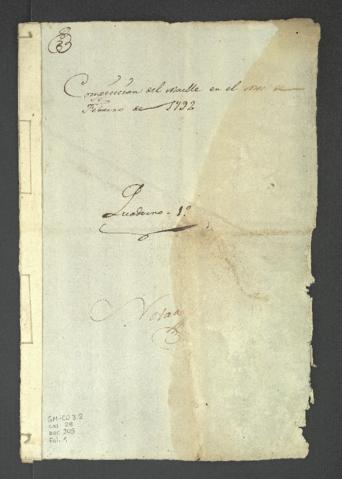 Composicion del Muelle en el Mes de
Febrero de 1792
Quaderno 1º
GM-CO 3.2
caj 28
doc 203
Fol. 1